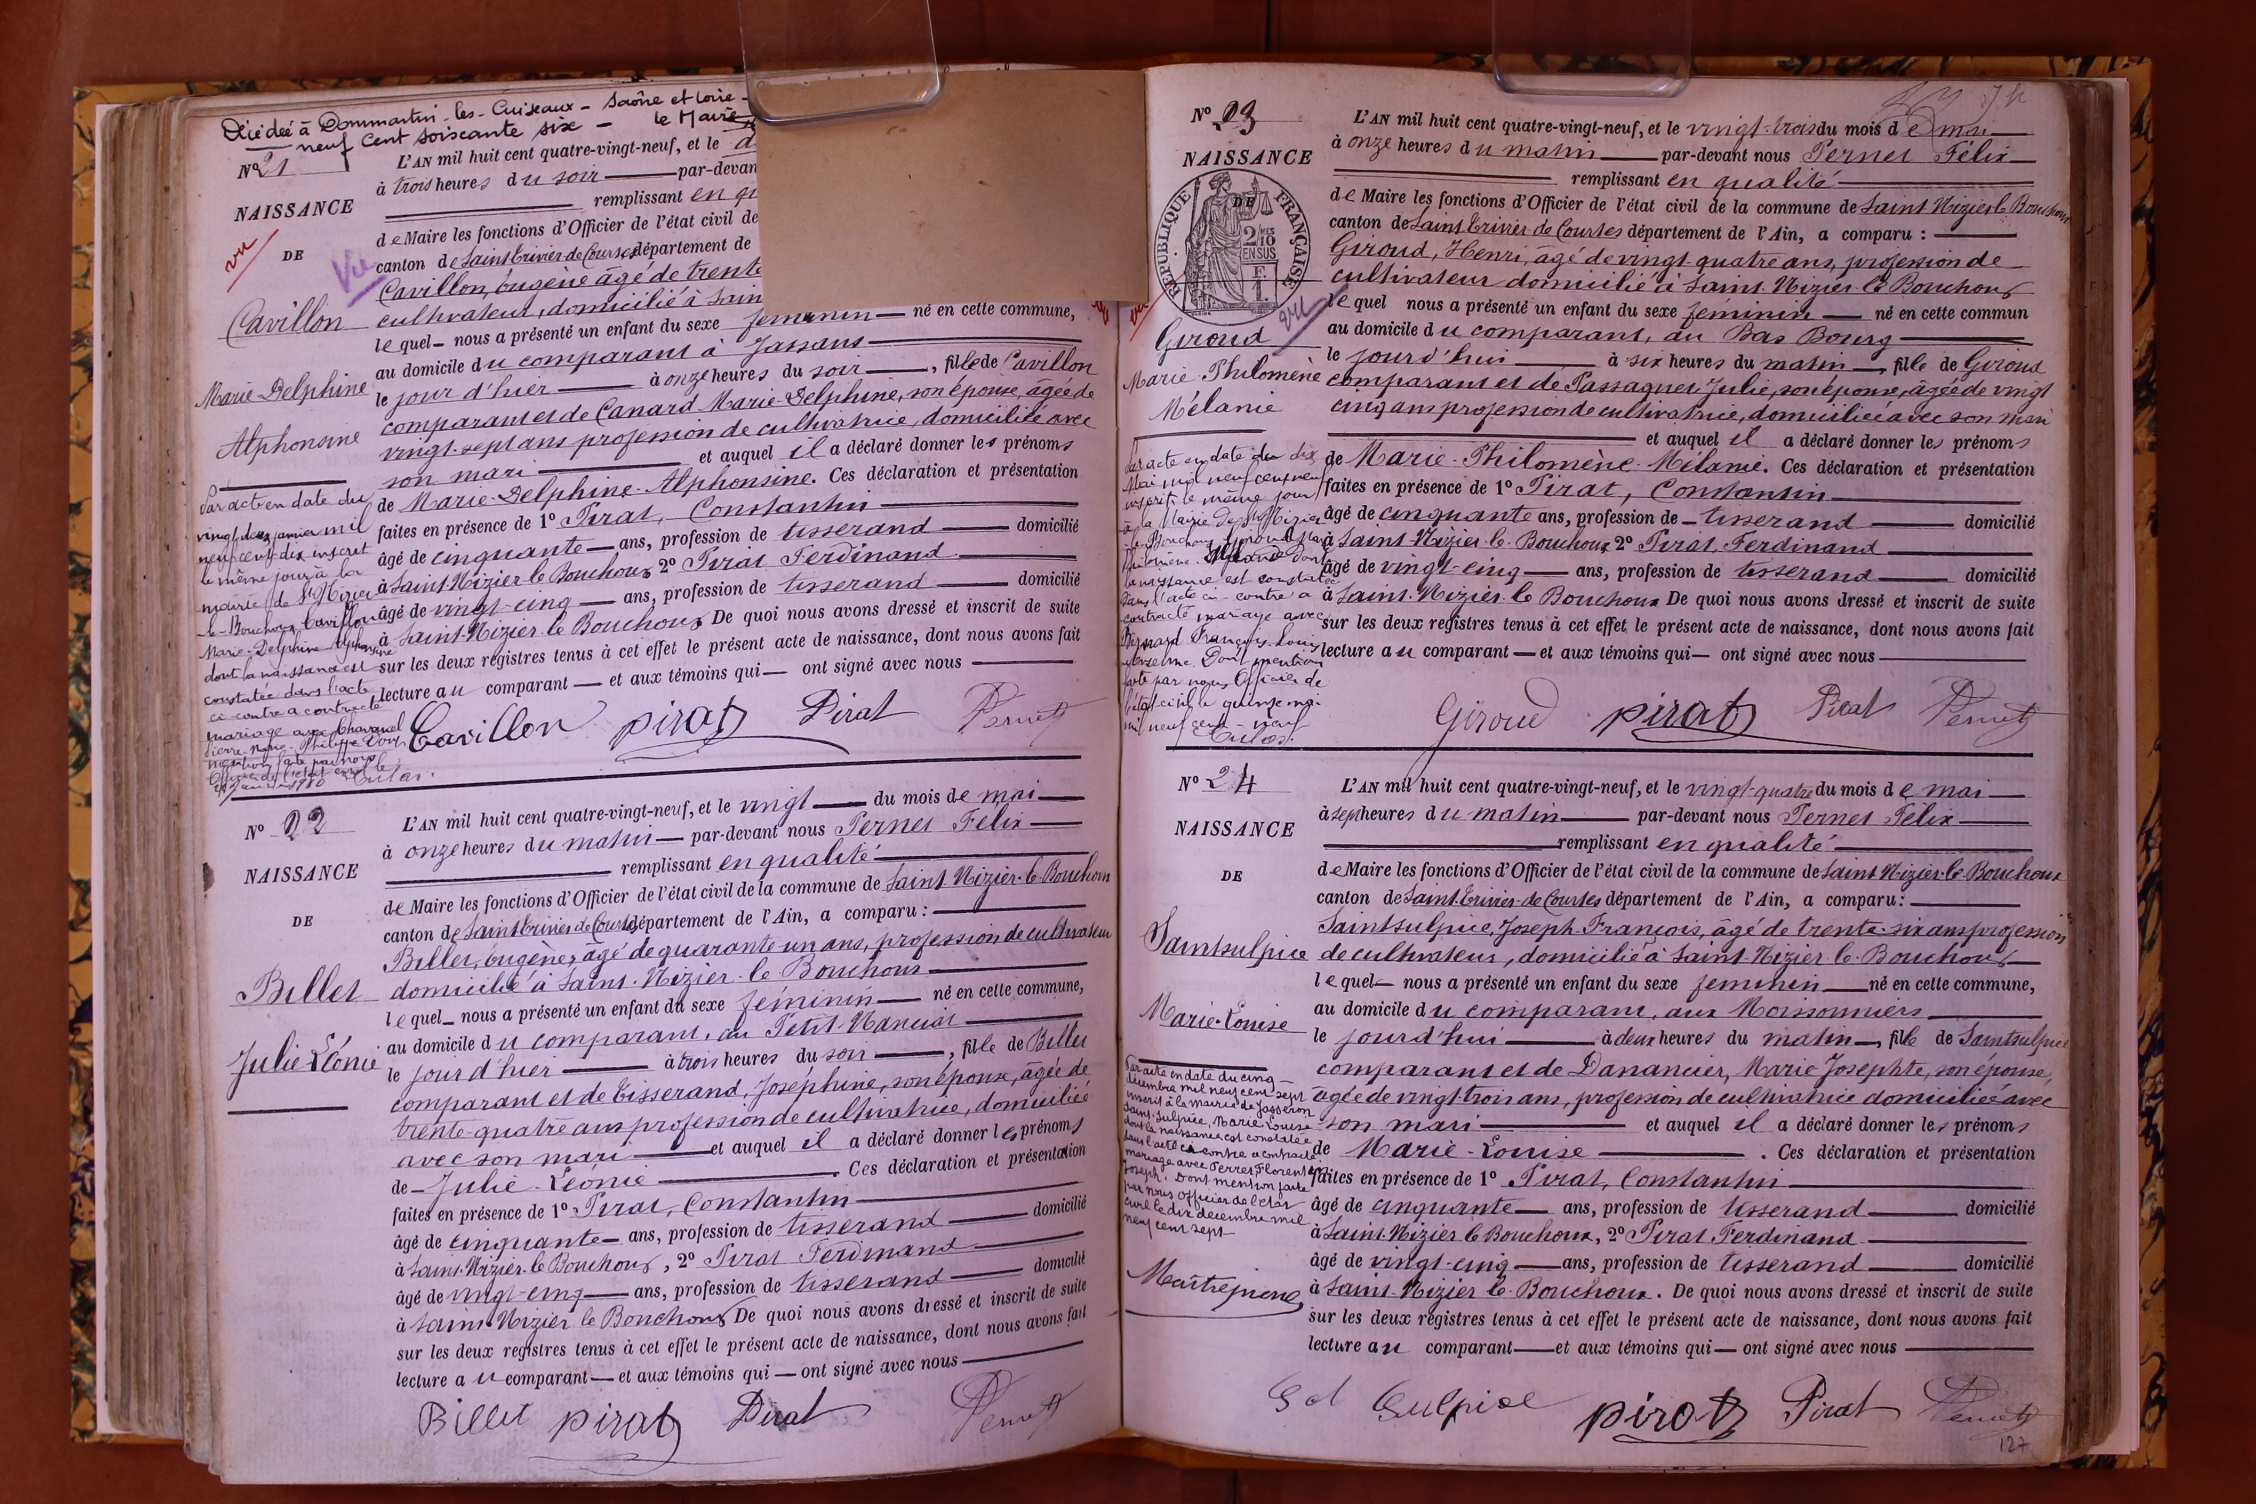 Décédée à Dommartin-les-Cuiseaux - Saône et Loire -
neuf cent soixante six - le Maire
N° 21
NAISSANCE
DE
vu
Vu
Cavillon
Marie Delphine
Alphonsine
Par acte en date du
vingt deux janvier mil
neuf cent dix inscrit
le même jour à la
mairie de St Nizier
le-Bouchoux Cavillon
Marie-Delphine Alphonsine
dont la naissance est
constatée dans l'acte
ci-contre a contracté
mariage avec Chavanel
Pierre Marie-Philippe Dont
mention faite par nous
Officier de l'état civil le
janvier 1910
L'AN mil huit cent quatre-vingt-neuf, et le
à trois heures du soir par-devan
remplissant en qu
de Maire les fonctions d'Officier de l'état civil de
canton de Saint Trivier de Courtes département de
Cavillon, Eugène âgé de trente
cultivateur, domicilié à Sain
lequel nous a présenté un enfant du sexe féminin né en cette commune,
au domicile du comparant à Jassans
le jour d'hier à onze heures du soir, fille de Cavillon
comparant et de Canard Marie-Delphine, son épouse, âgée de
vingt-sept ans profession de cultivatrice, domiciliée avec
son mari et auquel il a déclaré donner les prénoms
de Marie-Delphine-Alphonsine. Ces déclaration et présentation
faites en présence de 1° Pirat, Constantin
âgé de cinquante ans, profession de tisserand domicilié
à Saint-Nizier le Bouchoux 2° Pirat Ferdinand
âgé de vingt-cinq ans, profession de tisserand domicilié
à Saint-Nizier le Bouchoux De quoi nous avons dressé et inscrit de suite
sur les deux registres tenus à cet effet le présent acte de naissance, dont nous avons fait
lecture au comparant et aux témoins qui ont signé avec nous
Cavillon pirat Pirat Pernet
N° 22
NAISSANCE
DE
Billet
Julie Léonie
L'AN mil huit cent quatre-vingt-neuf, et le vingt du mois de mai
à onze heures du matin par-devant nous Pernet Félix
remplissant en qualité
de Maire les fonctions d'Officier de l'état civil de la commune de Saint Nizier-le-Bouchoux
canton de Saint Trivier de Courtes département de l'Ain, a comparu :
Billet, Eugène, âgé de quarante un ans, profession de cultivateur
domicilié à Saint-Nizier-le-Bouchoux
lequel nous a présenté un enfant du sexe féminin né en cette commune,
au domicile du comparant, au Petit-Manciat
le jour d'hier à trois heures du soir, fille de Billet
comparant et de Tisserand, Joséphine, son épouse, âgée de
trente-quatre ans profession de cultivatrice, domiciliée
avec son mari et auquel il a déclaré donner les prénoms
de Julie-Léonie. Ces déclaration et présentation
faites en présence de 1° Pirat, Constantin
âgé de cinquante ans, profession de tisserand domicilié
à Saint-Nizier-le Bouchoux, 2° Pirat Ferdinand
âgé de vingt-cinq ans, profession de tisserand domicilié
à Saint Nizier le Bouchoux De quoi nous avons dressé et inscrit de suite
sur les deux registres tenus à cet effet le présent acte de naissance, dont nous avons fait
lecture au comparant et aux témoins qui ont signé avec nous
Billet pirat Pirat Pernet
N° 23
NAISSANCE
DE
RÉPUBLIQUE FRANÇAISE
2/10 EN SUS
vu
Giroud
Marie Philomène
Mélanie
Par acte en date du dix
Mai mil neuf cent neuf
inscrit le même jour
à la Mairie de St Nizier
le Bouchoux Giroud Marie
Philomène Mélanie dont
la naissance est constatée
dans l'acte ci-contre a
contracté mariage avec
François Louis
Anselme. Dont mention
faite par nous, Officier de
l'état civil le quinze mai
mil neuf cent-neuf
L'AN mil huit cent quatre-vingt-neuf, et le vingt-trois du mois de mai
à onze heures du matin par-devant nous Pernet Félix
remplissant en qualité
de Maire les fonctions d'Officier de l'état civil de la commune de Saint Nizier le Bouchoux
canton de Saint Trivier de Courtes département de l'Ain, a comparu :
Giroud, Henri, âgé de vingt quatre ans, profession de
cultivateur domicilié à Saint-Nizier-le-Bouchoux
lequel nous a présenté un enfant du sexe féminin né en cette commun
au domicile du comparant, au Bas Bourg
le jourd'hui à six heures du matin, fille de Giroud
comparant et de Passaquet Julie, son épouse, âgée de vingt
cinq ans profession de cultivatrice, domiciliée avec son mari
et auquel il a déclaré donner les prénoms
de Marie-Philomène-Mélanie. Ces déclaration et présentation
faites en présence de 1° Pirat, Constantin
âgé de cinquante ans, profession de tisserand domicilié
à Saint-Nizier-le-Bouchoux 2° Pirat, Ferdinand
âgé de vingt-cinq ans, profession de tisserand domicilié
à Saint-Nizier-le Bouchoux De quoi nous avons dressé et inscrit de suite
sur les deux registres tenus à cet effet le présent acte de naissance, dont nous avons fait
lecture au comparant et aux témoins qui ont signé avec nous
Giroud pirat Pirat Pernet
N° 24
NAISSANCE
DE
Saintsulpice
Marie-Louise
Par acte en date du cinq
décembre mil neuf cent sept
inscrit à la mairie de Jasseron
Saint-Sulpice, Marie Louise
dont la naissance est constatée
dans l'acte ci-contre a contracté
mariage avec Perret Florent
Joseph. Dont mention faite
par nous officier de l'état
civil le dix décembre mil
neuf cent sept
L'AN mil huit cent quatre-vingt-neuf, et le vingt-quatre du mois de mai
à sept heures du matin par-devant nous Pernet Félix
remplissant en qualité
de Maire les fonctions d'Officier de l'état civil de la commune de Saint Nizier-le-Bouchoux
canton de Saint Trivier-de-Courtes département de l'Ain, a comparu :
Saintsulpice, Joseph-François, âgé de trente-six ans profession
de cultivateur, domicilié à Saint-Nizier-le-Bouchoux
lequel nous a présenté un enfant du sexe féminin né en cette commune,
au domicile du comparant, aux Moissonniers
le jourd'hui à deux heures du matin, fille de Saintsulpice
comparant et de Danancier, Marie Josephte, son épouse,
âgée de vingt-trois ans, profession de cultivatrice domiciliée avec
son mari et auquel il a déclaré donner les prénoms
de Marie-Louise. Ces déclaration et présentation
faites en présence de 1° Pirat, Constantin
âgé de cinquante ans, profession de tisserand domicilié
à Saint-Nizier le Bouchoux, 2° Pirat Ferdinand
âgé de vingt-cinq ans, profession de tisserand domicilié
à Saint-Nizier le-Bouchoux. De quoi nous avons dressé et inscrit de suite
sur les deux registres tenus à cet effet le présent acte de naissance, dont nous avons fait
lecture au comparant et aux témoins qui ont signé avec nous
Sulpice pirat Pirat Pernet
127